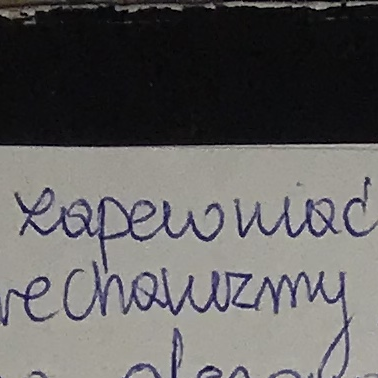 zapewniać
mechanizmy